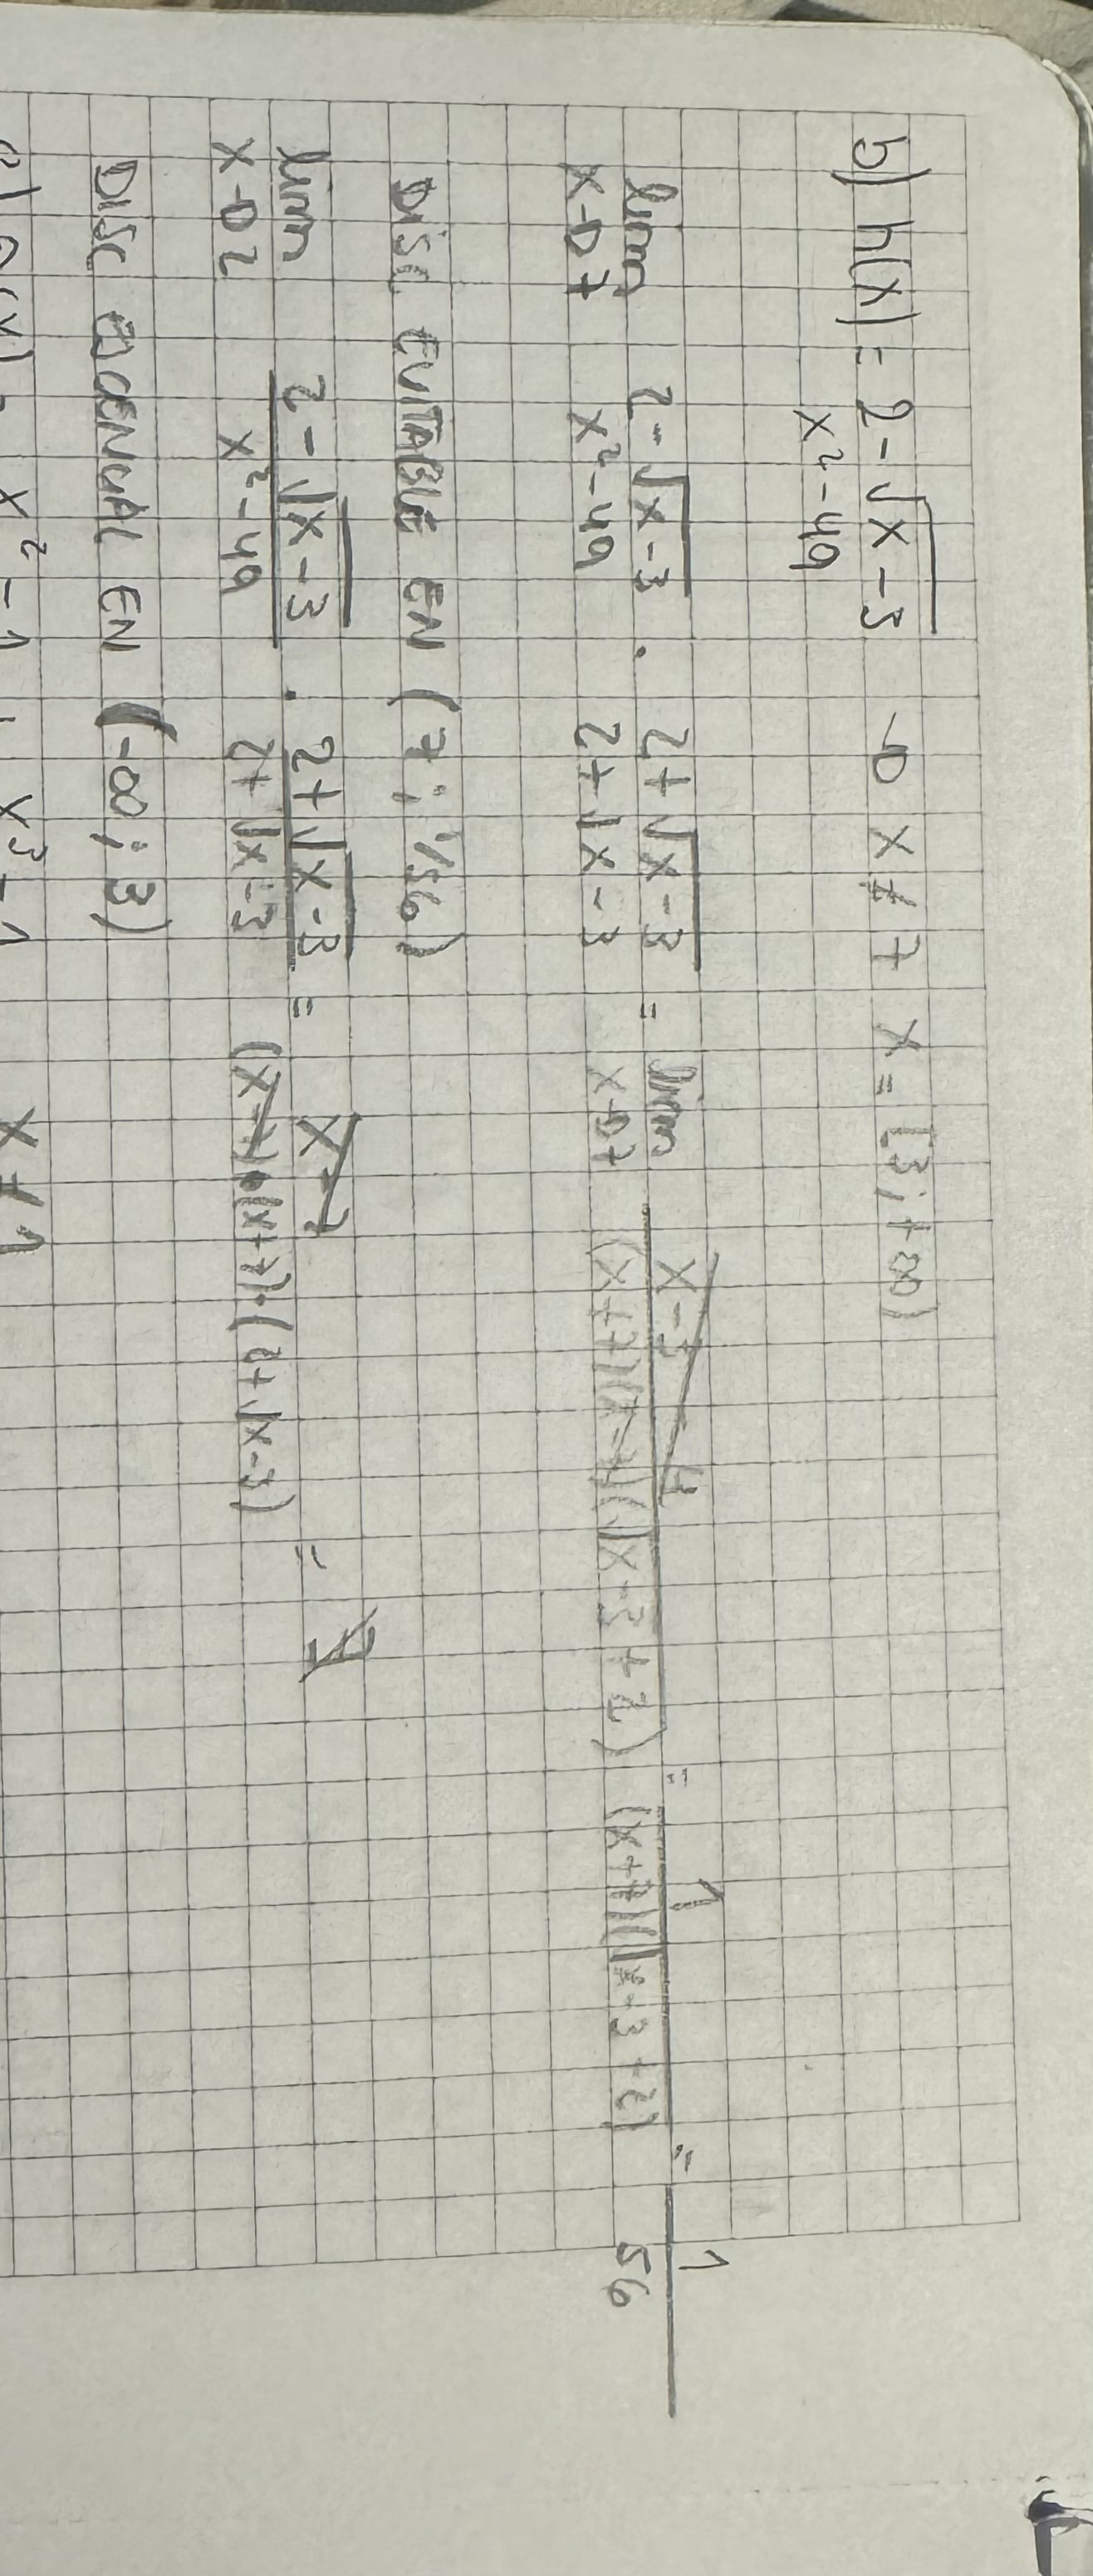 b) h(x) = (2-√(x-3))/(x²-49) → x ≠ 7 x = [3;+∞)
lim x→7 (2-√(x-3))/(x²-49) . (2+√(x-3))/(2+√(x-3)) = lim x→7 (x-3-4)/((x+7)(x-7)(√(x-3)+2)) = 1/((x+7)(√(x-3)+2)) = 1/56
DISC EVITABLE EN (7; 1/56)
lim x→2 (2-√(x-3))/(x²-49) . (2+√(x-3))/(2+√(x-3)) = (x-7)/((x-7)·(x+7)·(2+√(x-3))) = ∄
DISC ESCENCIAL EN (-∞; 3)